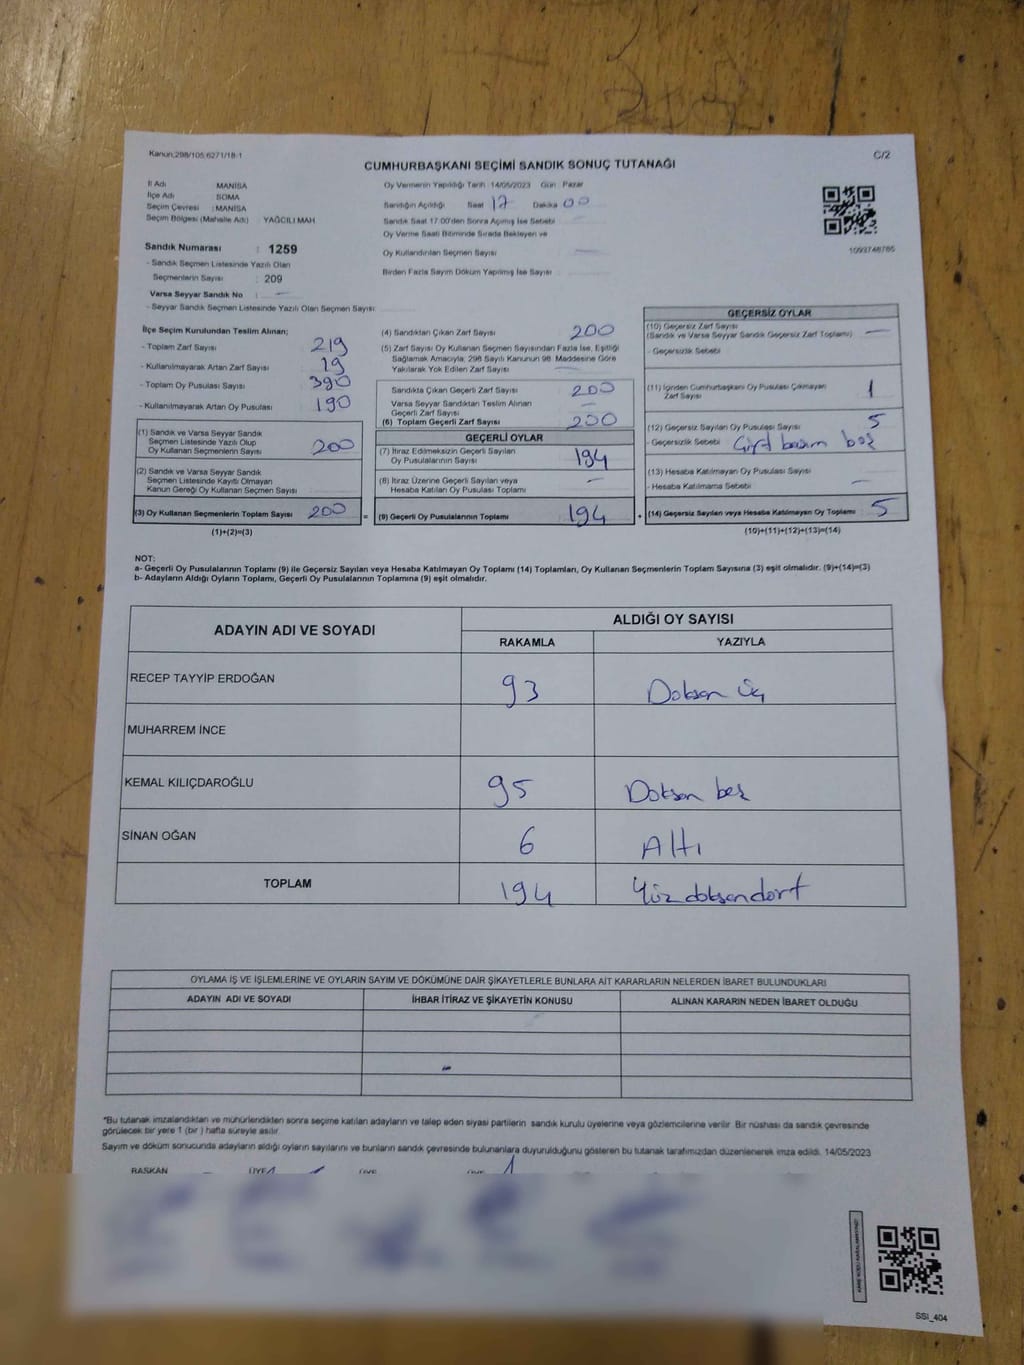 Kanun;298/105 6271/18-1
C/2
CUMHURBAŞKANI SEÇİMİ SANDIK SONUÇ TUTANAĞI
İl Adı MANİSA
İlçe Adı SOMA
Seçim Çevresi : MANİSA
Seçim Bölgesi (Mahalle Adı) YAĞCILI MAH
Oy Vermenin Yapıldığı Tarih 14/05/2023 Gün Pazar
Sandığın Açıldığı Saat 17 Dakika 00
Sandık Saat 17.00'den Sonra Açılmış İse Sebebi
Oy Verme Saati Bitiminde Sırada Bekleyen ve
Oy Kullandırılan Seçmen Sayısi
Birden Fazla Sayım Döküm Yapılmış İse Sayısı :
1093748785
Sandık Numarası : 1259
- Sandık Seçmen Listesinde Yazılı Olan
Seçmenlerin Sayısı : 209
Varsa Seyyar Sandık No : —
- Seyyar Sandık Seçmen Listesinde Yazılı Olan Seçmen Sayısı:
İlçe Seçim Kurulundan Teslim Alınan;
- Toplam Zarf Sayısı 219
- Kullanılmayarak Artan Zarf Sayısı 19
- Toplam Oy Pusulası Sayısı 390
- Kullanılmayarak Artan Oy Pusulası 190
(1) Sandık ve Varsa Seyyar Sandık
Seçmen Listesinde Yazılı Olup
Oy Kullanan Seçmenlerin Sayısı 200
(2) Sandık ve Varsa Seyyar Sandık
Seçmen Listesinde Kayıtlı Olmayan
Kanun Gereği Oy Kullanan Seçmen Sayısı
(3) Oy Kullanan Seçmenlerin Toplam Sayısı 200 =
(1)+(2)=(3)
(4) Sandıktan Çıkan Zarf Sayısı 200
(5) Zarf Sayısı Oy Kullanan Seçmen Sayısından Fazla İse, Eşitliği
Sağlamak Amacıyla, 298 Sayılı Kanunun 98. Maddesine Göre
Yakılarak Yok Edilen Zarf Sayısı
Sandıkta Çıkan Geçerli Zarf Sayısı 200
Varsa Seyyar Sandıktan Teslim Alınan
Geçerli Zarf Sayısı —
(6) Toplam Geçerli Zarf Sayısı 200
GEÇERLİ OYLAR
(7) İtiraz Edilmeksizin Geçerli Sayılan
Oy Pusulalarının Sayısı 194
(8) İtiraz Üzerine Geçerli Sayılan veya
Hesaba Katılan Oy Pusulası Toplamı —
(9) Geçerli Oy Pusulalarının Toplamı 194 +
GEÇERSİZ OYLAR
(10) Geçersiz Zarf Sayısı
(Sandık ve Varsa Seyyar Sandık Geçersiz Zarf Toplamı) —
- Geçersizlik Sebebi
(11) İçinden Cumhurbaşkanı Oy Pusulası Çıkmayan
Zarf Sayısı 1
(12) Geçersiz Sayılan Oy Pusulası Sayısı 5
- Geçersizlik Sebebi Çift basım boş
(13) Hesaba Katılmayan Oy Pusulası Sayısı
- Hesaba Katılmama Sebebi —
(14) Geçersiz Sayılan veya Hesaba Katılmayan Oy Toplamı 5
(10)+(11)+(12)+(13)=(14)
NOT:
a- Geçerli Oy Pusulalarının Toplamı (9) ile Geçersiz Sayılan veya Hesaba Katılmayan Oy Toplamı (14) Toplamları, Oy Kullanan Seçmenlerin Toplam Sayısına (3) eşit olmalıdır. (9)+(14)=(3)
b- Adayların Aldığı Oyların Toplamı, Geçerli Oy Pusulalarının Toplamına (9) eşit olmalıdır.
ADAYIN ADI VE SOYADI ALDIĞI OY SAYISI
RAKAMLA YAZIYLA
RECEP TAYYİP ERDOĞAN 93 Doksan üç
MUHARREM İNCE
KEMAL KILIÇDAROĞLU 95 Doksan beş
SİNAN OĞAN 6 Altı
TOPLAM 194 Yüz doksandört
OYLAMA İŞ VE İŞLEMLERİNE VE OYLARIN SAYIM VE DÖKÜMÜNE DAİR ŞİKAYETLERLE BUNLARA AİT KARARLARIN NELERDEN İBARET BULUNDUKLARI
ADAYIN ADI VE SOYADI İHBAR İTİRAZ VE ŞİKAYETİN KONUSU ALINAN KARARIN NEDEN İBARET OLDUĞU
*Bu tutanak imzalandıktan ve mühürlendikten sonra seçime katılan adayların ve talep eden siyasi partilerin sandık kurulu üyelerine veya gözlemcilerine verilir. Bir nüshası da sandık çevresinde
görülecek bir yere 1 (bir ) hafta süreyle asılır
Sayım ve döküm sonucunda adayların aldığı oyların sayılarını ve bunların sandık çevresinde bulunanlara duyurulduğunu gösteren bu tutanak tarafımızdan düzenlenerek imza edildi. 14/05/2023
BAŞKAN ÜYE ÜYE ÜYE
SSI_404